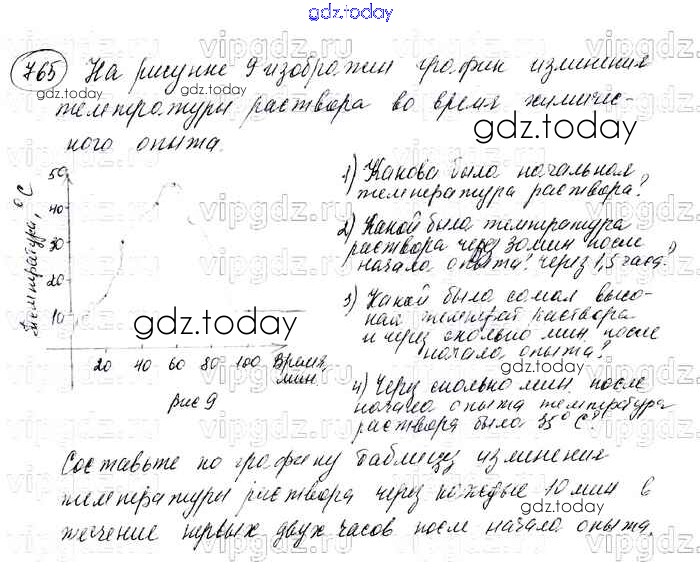 gdz.today
765 На рисунке 9 изображен график изменения
температуры раствора во время химичес-
ного опыта.
Температура, °C
50
40
30
20
10
20 40 60 80 100 Время, мин
рис 9
1) Какова была начальная
температура раствора?
2) Какой была температура
раствора через 30 мин после
начала опыта? через 1,5 часа?
3) Какой была самая высо-
кая температ раствора
и через сколько мин после
начала опыта?
4) Через сколько мин после
начала опыта температура
раствора была 35° C?
Составьте по графику таблицу изменения
температуры раствора через каждые 10 мин в
течение первых двух часов после начала опыта.
gdz.today
gdz.today
gdz.today
gdz.today
gdz.today
gdz.today
vipgdz.ru